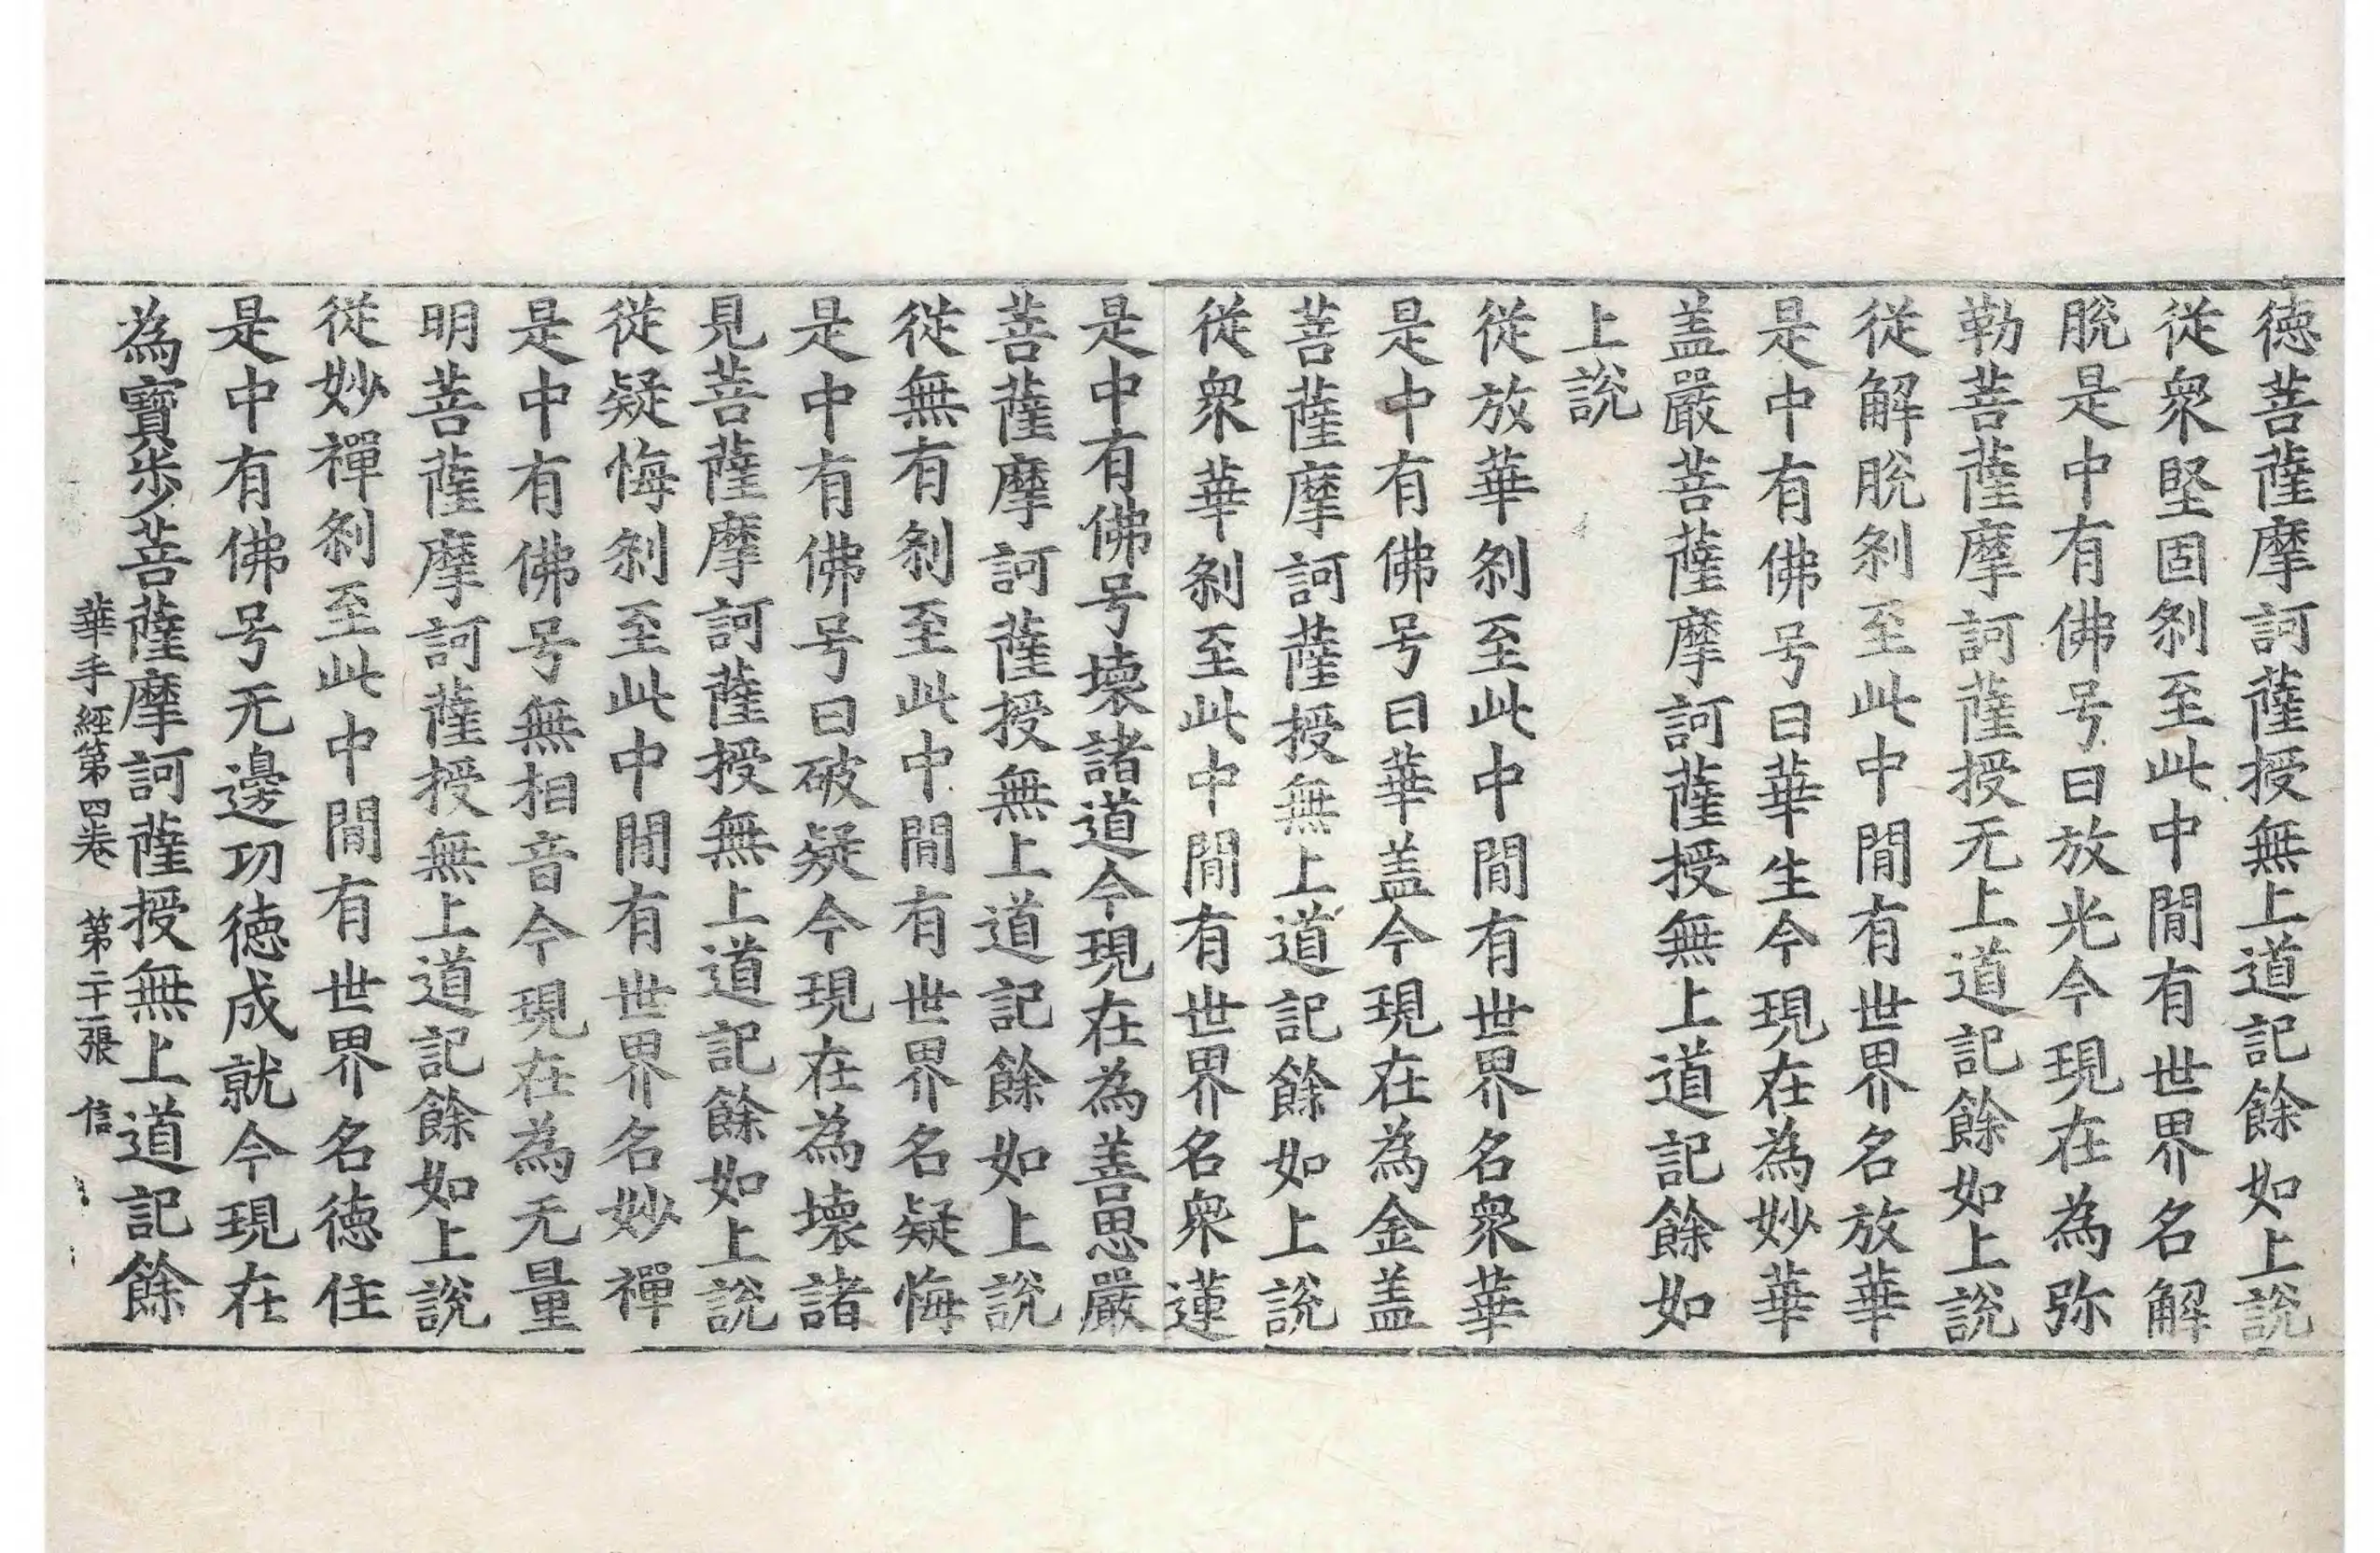 德菩薩摩訶薩授無上道記餘如上說
從衆堅固剎至此中閒有世界名解
脫是中有佛号曰放光今現在為弥
勒菩薩摩訶薩授无上道記餘如上說
從解脫剎至此中閒有世界名放華
是中有佛号曰華生今現在為妙華
盖嚴菩薩摩訶薩授無上道記餘如
上說
從放華剎至此中閒有世界名衆華
是中有佛号曰華盖今現在為金盖
菩薩摩訶薩授無上道記餘如上說
從衆華剎至此中閒有世界名衆蓮
是中有佛号壞諸道今現在為善思嚴
菩薩摩訶薩授無上道記餘如上說
從無有剎至此中閒有世界名疑悔
是中有佛号曰破疑今現在為壞諸
見菩薩摩訶薩授無上道記餘如上說
從疑悔剎至此中閒有世界名妙禪
是中有佛号無相音今現在為无量
明菩薩摩訶薩授無上道記餘如上說
從妙禪剎至此中閒有世界名德住
是中有佛号无邊功德成就今現在
為寶步菩薩摩訶薩授無上道記餘
華手經第四卷 第二十一張 信